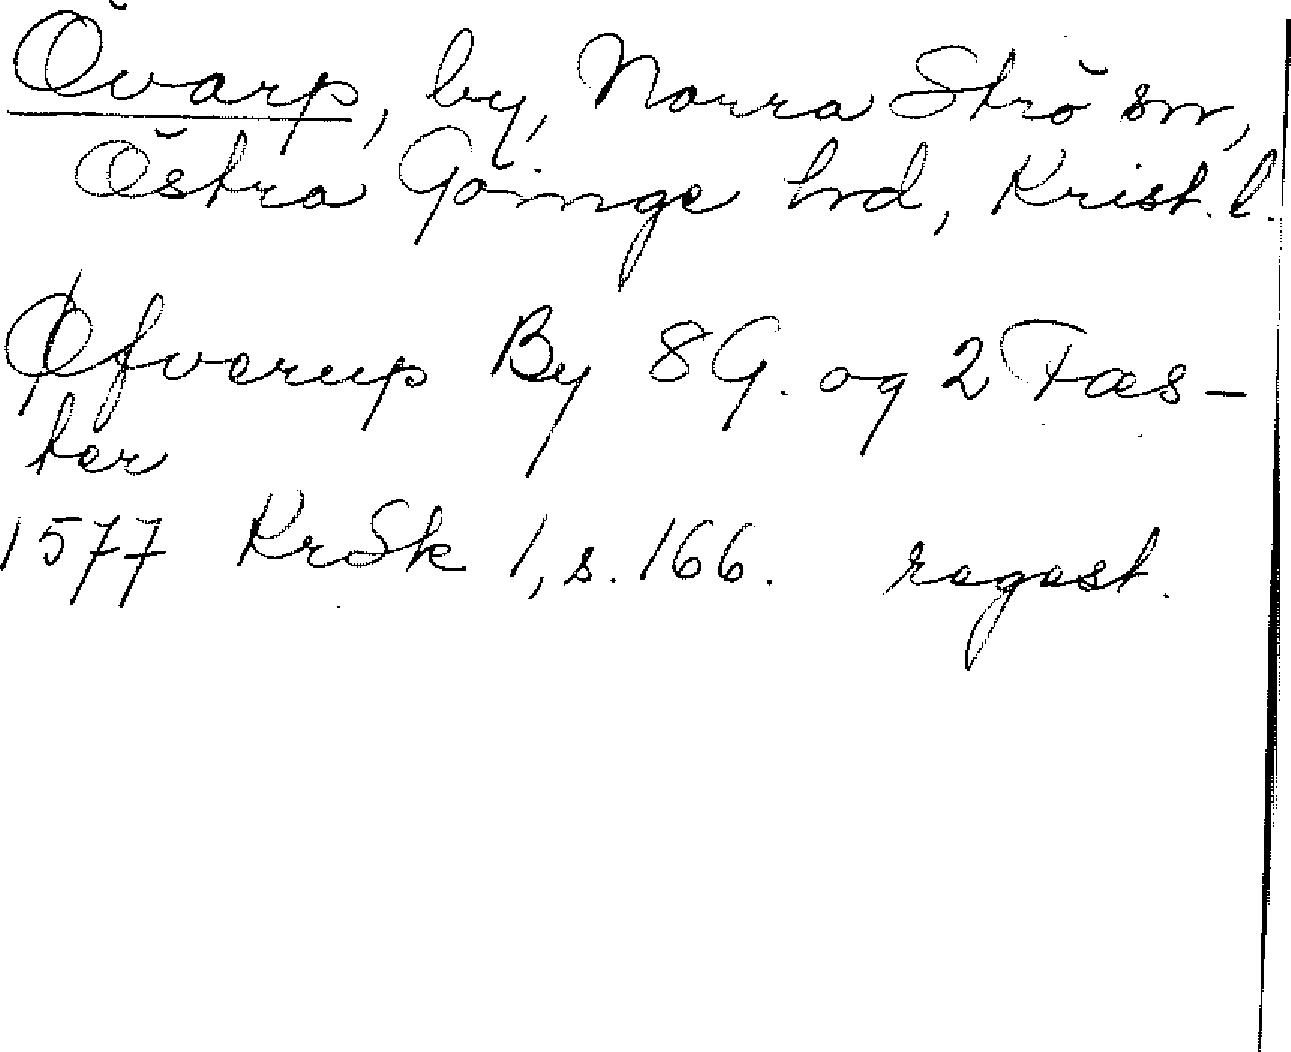 Övarp, by, Norra Strö sn,
Östra Göinge hd, Krist. l.
Øfverup By 8 G. og 2 Fæs-
ter
1577 KrSk 1, s. 166. regest.